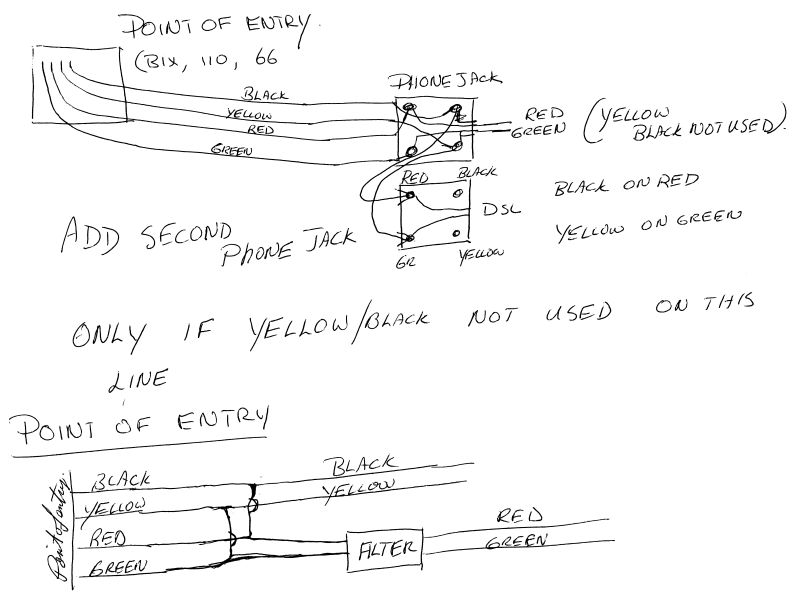 POINT OF ENTRY.
(BIX, 110, 66
PHONE JACK
BLACK
YELLOW
RED
GREEN
RED
GREEN
(YELLOW
BLACK NOT USED).
RED
BLACK
DSL
GR
YELLOW
BLACK ON RED
YELLOW ON GREEN
ADD SECOND
PHONE JACK
ONLY IF YELLOW/BLACK NOT USED ON THIS
LINE
POINT OF ENTRY
Point of entry.
BLACK
YELLOW
RED
GREEN
BLACK
YELLOW
FILTER
RED
GREEN